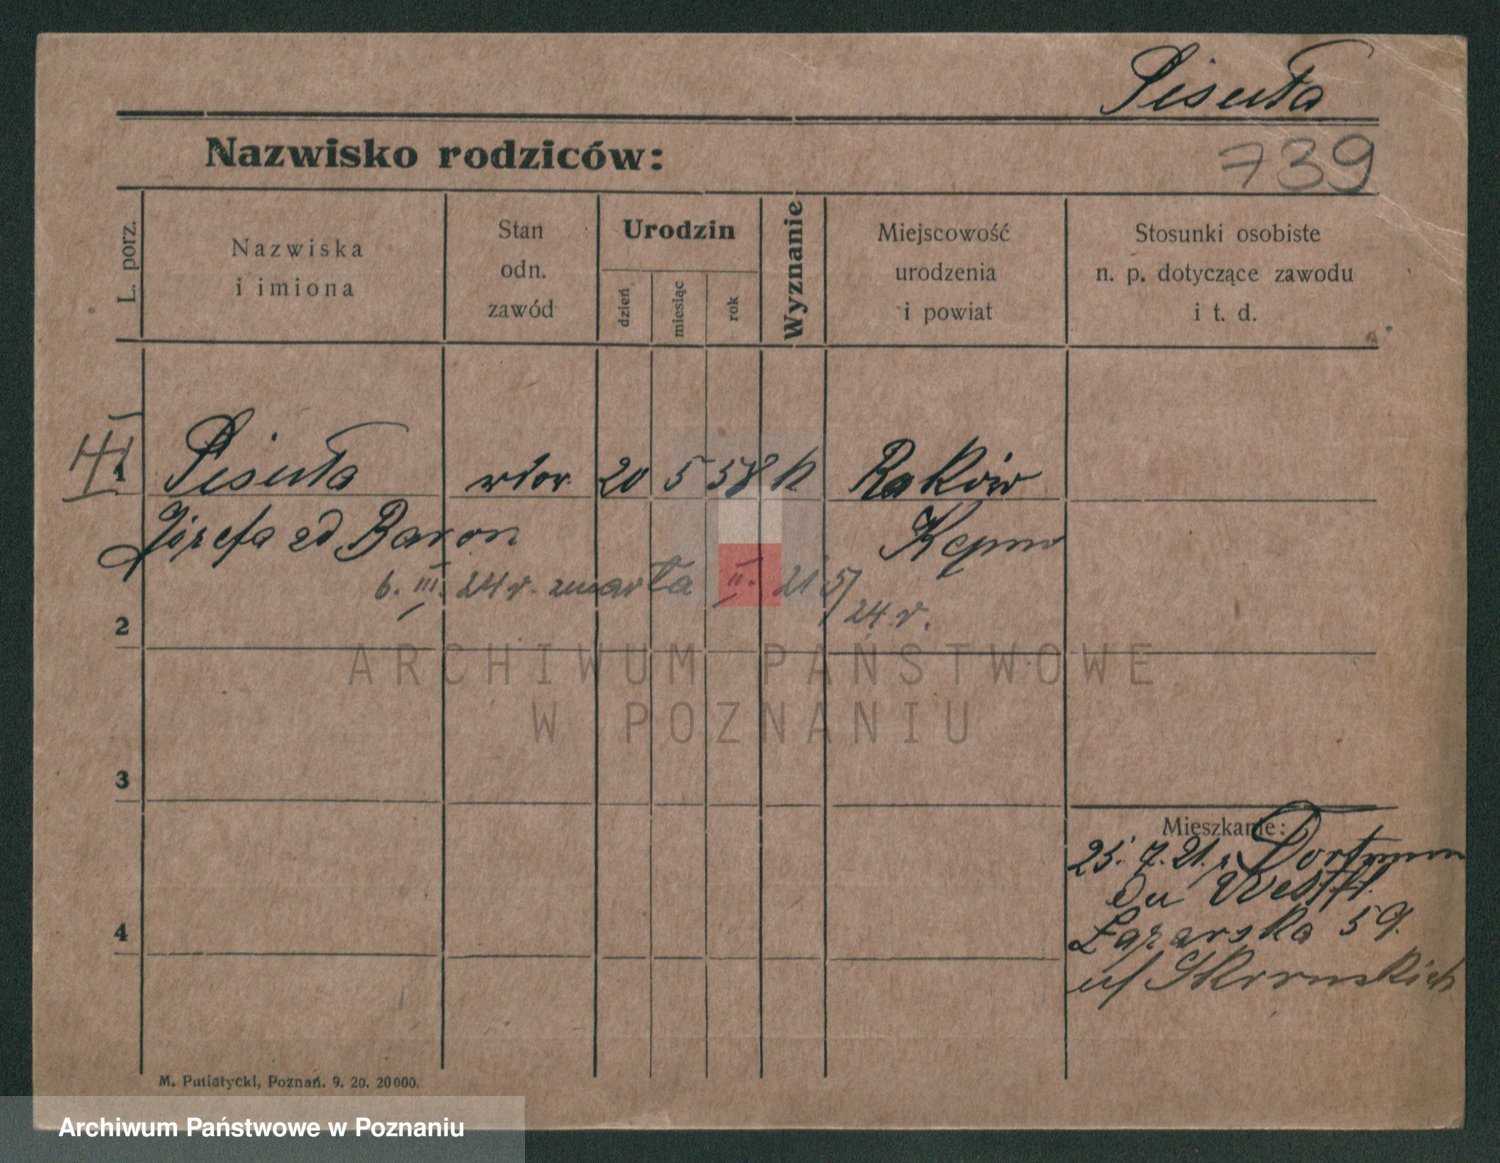 Pisuła
Nazwisko rodziców:
739
L. porz.
Nazwiska
i imiona
Stan
odn.
zawód
Urodzin
dzień
miesiąc
rok
Wyznanie
Miejscowość
urodzenia
i powiat
Stosunki osobiste
n. p. dotyczące zawodu
i t. d.
1 Pisuła wdow 20 5 58 k Raków
Józefa zd Baron Kępno
6. III. 24 r. zmarła II. 215/24 r.
2
ARCHIWUM PAŃSTWOWE
W POZNANIU
3
Mieszkanie:
25. 7. 21. z Dortmun
Westf.
4
Łazarska 59.
u/
M. Putiatycki, Poznań. 9. 20. 20000.
Archiwum Państwowe w Poznaniu